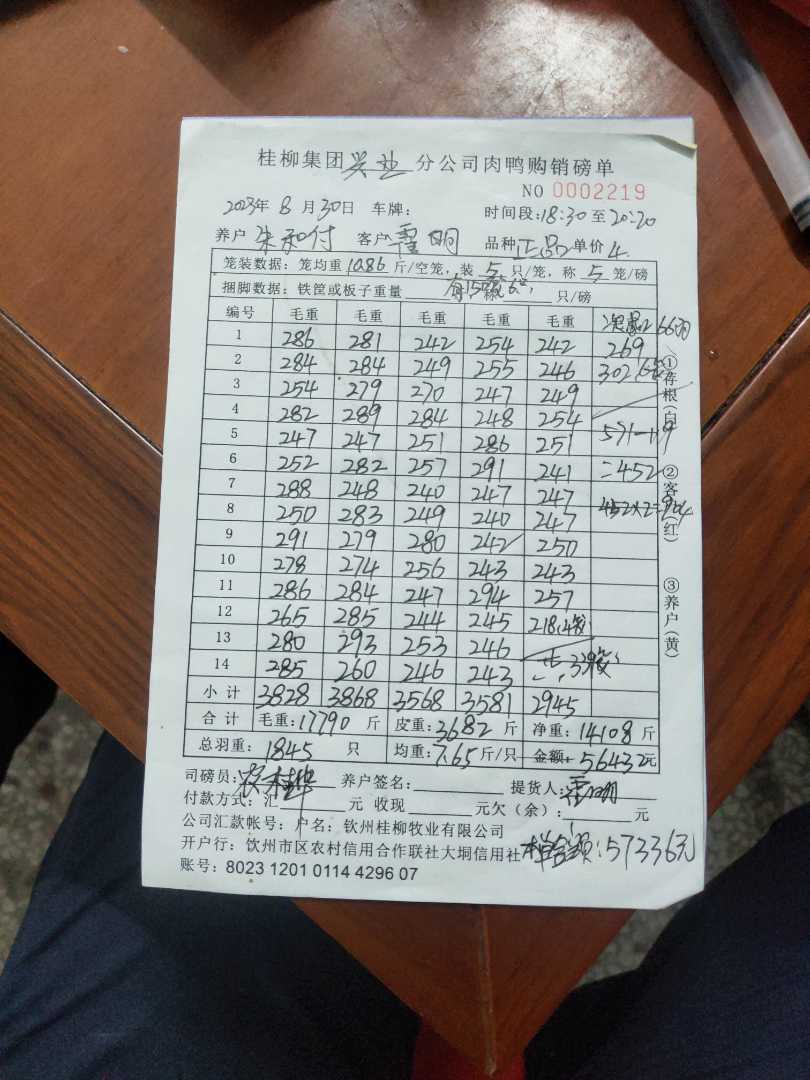 桂柳集团兴业分公司肉鸭购销磅单
NO 0002219
2023年 8 月 30日 车牌: 时间段:18:30 至 20:20
养户 朱和付 客户 霍明 品种 正品 单价 4.
笼装数据:笼均重 10.86 斤/空笼,装 5 只/笼,称 5 笼/磅
捆脚数据:铁筐或板子重量 只/磅
编号 毛重 毛重 毛重 毛重 毛重
1 286 281 242 254 242 269
2 284 284 249 255 246 302
3 254 279 270 247 249
4 282 289 284 248 254
5 247 247 251 286 251 571-119
6 252 282 257 291 241 =452
7 288 248 240 247 247
8 250 283 249 240 247 452×2=904
9 291 279 280 242 250
10 278 274 256 243 243
11 286 284 247 294 257
12 265 285 244 245 218
13 280 293 253 246
14 285 260 246 243
小计 3828 3868 3568 3581 2945
合计 毛重:17790 斤 皮重:3682 斤 净重:14108 斤
总羽重: 1845 只 均重:7.65 斤/只 金额:56432元
司磅员: 养户签名: 提货人:霍明
付款方式:汇 元 收现 元欠(余): 元
公司汇款帐号:户名:钦州桂柳牧业有限公司
开户行:钦州市区农村信用合作联社大垌信用社
:57336元
账号:8023 1201 0114 4296 07
①存根(白)
②客户(红)
③养户(黄)